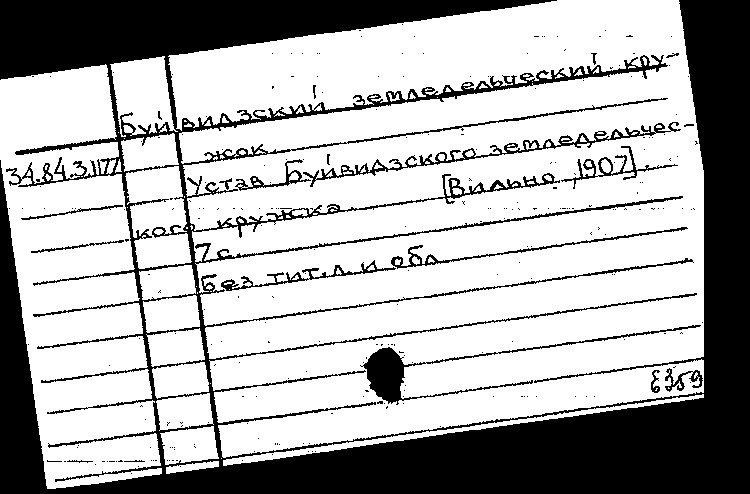 Буйвидзский земледельческий кру-
жок.
34.84.3.1177
Устав Буйвидзского земледельчес-
кого кружка. [Вильно, 1907].
7 с.
Без тит. л. и обл
6359